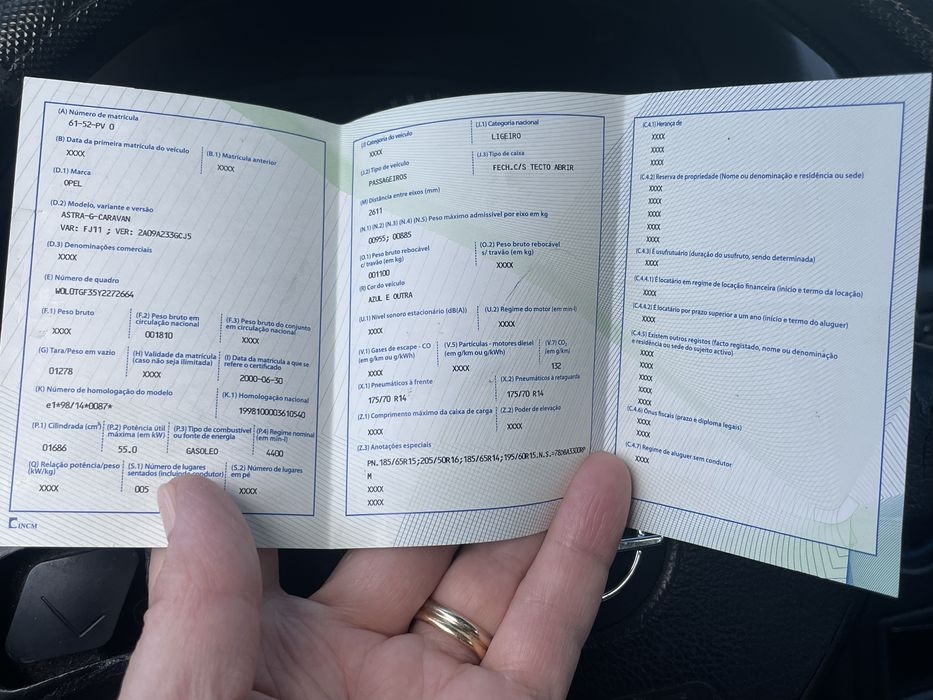 (A) Número de matrícula
61-52-PV 0
(B) Data da primeira matrícula do veículo
XXXX
(B.1) Matrícula anterior
XXXX
(D.1) Marca
OPEL
(D.2) Modelo, variante e versão
ASTRA-G-CARAVAN
VAR: FJ11 ; VER: 2A09A233GCJ5
(D.3) Denominações comerciais
XXXX
(E) Número de quadro
W0L0TGF35Y2272664
(F.1) Peso bruto
XXXX
(F.2) Peso bruto em
circulação nacional
001810
(F.3) Peso bruto do conjunto
em circulação nacional
XXXX
(G) Tara/Peso em vazio
01278
(H) Validade da matrícula
(caso não seja ilimitada)
XXXX
(I) Data da matrícula a que se
refere o certificado
2000-06-30
(K) Número de homologação do modelo
e1*98/14*0087*
(K.1) Homologação nacional
1998100003610540
(P.1) Cilindrada (cm³)
01686
(P.2) Potência útil
máxima (em kW)
55.0
(P.3) Tipo de combustível
ou fonte de energia
GASOLEO
(P.4) Regime nominal
(em min-l)
4400
(Q) Relação potência/peso
(kW/kg)
XXXX
(S.1) Número de lugares
sentados (incluindo condutor)
005
(S.2) Número de lugares
em pé
XXXX
INCM
(J) Categoria do veículo
XXXX
(J.1) Categoria nacional
LIGEIRO
(J.2) Tipo de veículo
PASSAGEIROS
(J.3) Tipo de caixa
FECH.C/S TECTO ABRIR
(M) Distância entre eixos (mm)
2611
(N.1) (N.2) (N.3) (N.4) (N.5) Peso máximo admissível por eixo em kg
00955; 00885
(O.1) Peso bruto rebocável
c/ travão (em kg)
001100
(O.2) Peso bruto rebocável
s/ travão (em kg)
XXXX
(R) Cor do veículo
AZUL E OUTRA
(U.1) Nível sonoro estacionário (dB(A))
XXXX
(U.2) Regime do motor (em min-l)
XXXX
(V.1) Gases de escape - CO
(em g/km ou g/kWh)
XXXX
(V.5) Partículas - motores diesel
(em g/km ou g/kWh)
XXXX
(V.7) CO₂
(em g/km)
132
(X.1) Pneumáticos à frente
175/70 R14
(X.2) Pneumáticos à retaguarda
175/70 R14
(Z.1) Comprimento máximo da caixa de carga
XXXX
(Z.2) Poder de elevação
XXXX
(Z.3) Anotações especiais
PN.185/65R15;205/50R16;185/65R14;195/60R15.N.S.
M
XXXX
XXXX
(C.4.1) Herança de
XXXX
XXXX
XXXX
(C.4.2) Reserva de propriedade (Nome ou denominação e residência ou sede)
XXXX
XXXX
XXXX
XXXX
XXXX
(C.4.3) É usufrutuário (duração do usufruto, sendo determinada)
XXXX
(C.4.4.1) É locatário em regime de locação financeira (início e termo da locação)
XXXX
(C.4.4.2) É locatário por prazo superior a um ano (início e termo do aluguer)
XXXX
(C.4.5) Existem outros registos (facto registado, nome ou denominação
e residência ou sede do sujeito activo)
XXXX
XXXX
XXXX
XXXX
XXXX
(C.4.6) Ónus fiscais (prazo e diploma legais)
XXXX
XXXX
(C.4.7) Regime de aluguer sem condutor
XXXX